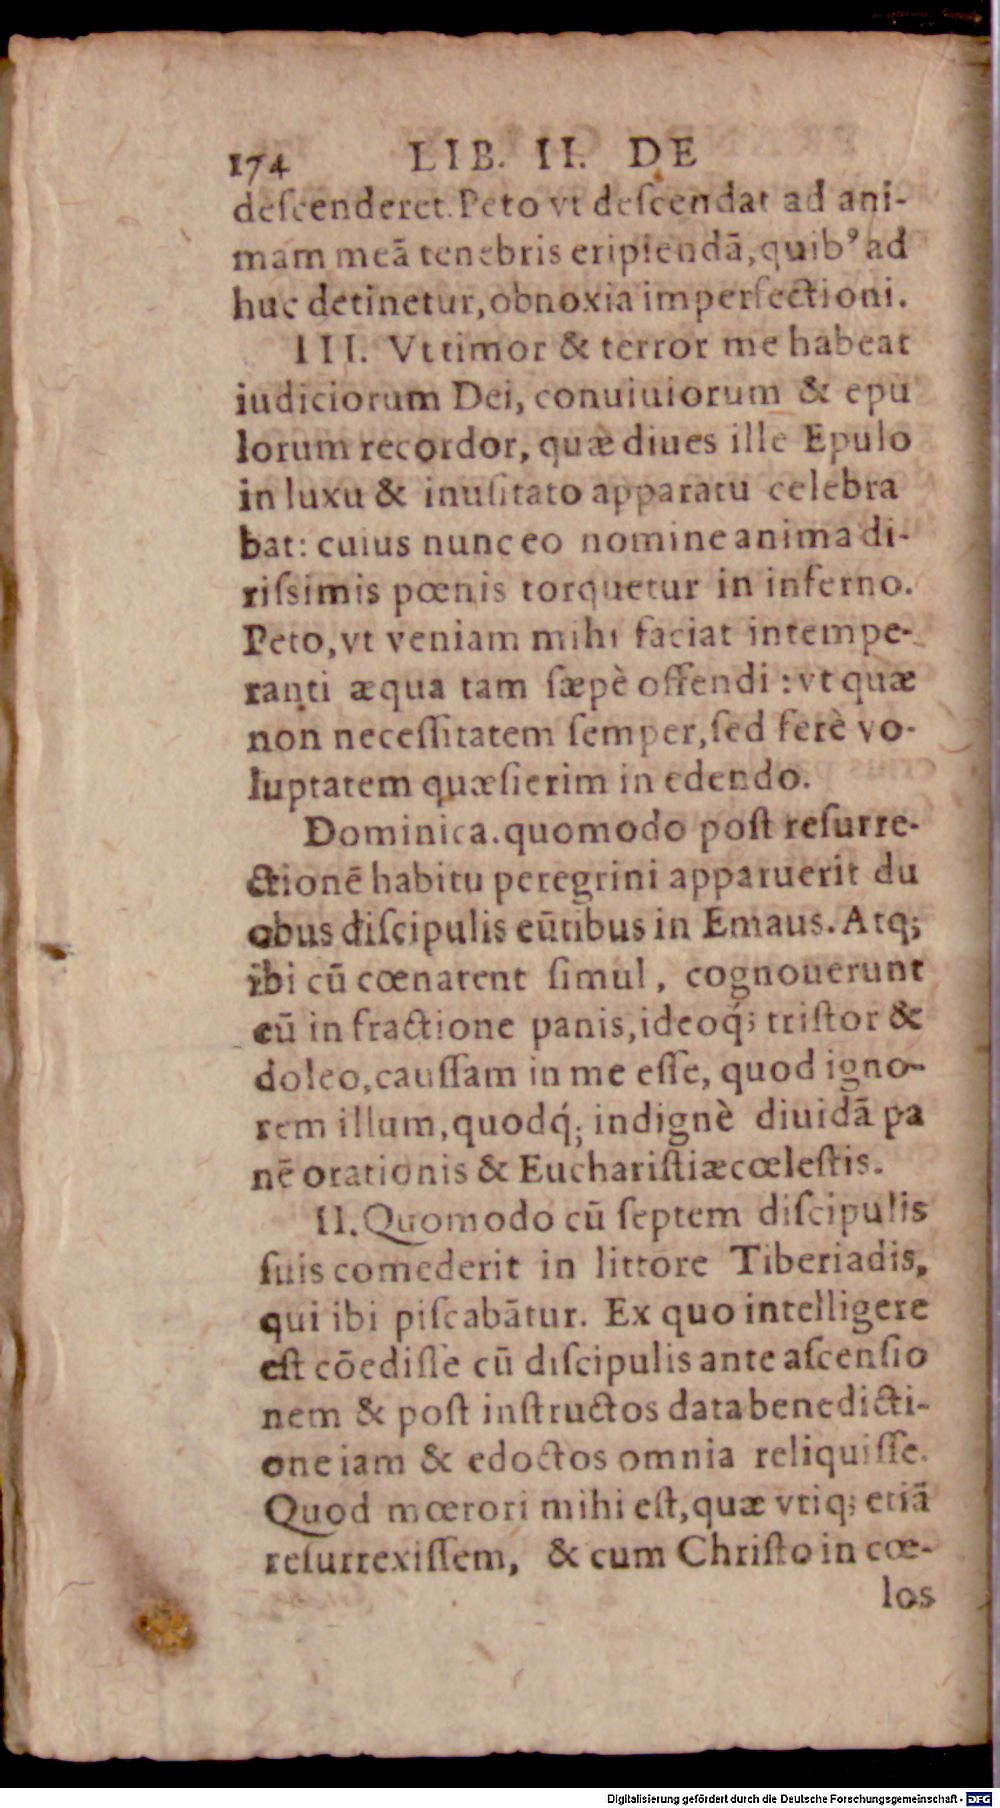 174 LIB. II. DE
deſcenderet. Peto vt deſcendat ad ani-
mam meā tenebris eripiendā, quibꝰ ad
huc detinetur, obnoxia imperfectioni.
III. Vt timor & terror me habeat
iudiciorum Dei, conuiuiorum & epu
lorum recordor, quæ diues ille Epulo
in luxu & inuſitato apparatu celebra
bat: cuius nunc eo nomine anima di-
riſsimis pœnis torquetur in inferno.
Peto, vt veniam mihi faciat intempe-
ranti æqua tam ſæpè offendi: vt quæ
non neceſſitatem ſemper, ſed ferè vo-
luptatem quæſierim in edendo.
Dominica. quomodo poſt reſurre-
ctionē habitu peregrini apparuerit du
obus diſcipulis eūtibus in Emaus. Atq;
ibi cū cœnarent ſimul, cognouerunt
eū in fractione panis, ideoq́; triſtor &
doleo, cauſſam in me eſſe, quod igno-
rem illum, quodq́; indignè diuidā pa
nē orationis & Euchariſtiæ cœleſtis.
II. Quomodo cū ſeptem diſcipulis
ſuis comederit in littore Tiberiadis,
qui ibi piſcabātur. Ex quo intelligere
eſt cōediſſe cū diſcipulis ante aſcenſio
nem & poſt inſtructos data benedicti-
one iam & edoctos omnia reliquiſſe.
Quod mœrori mihi eſt, quæ vtiq; etiā
reſurrexiſſem, & cum Chriſto in cœ-
los
Digitalisierung gefördert durch die Deutsche Forschungsgemeinschaft - DFG